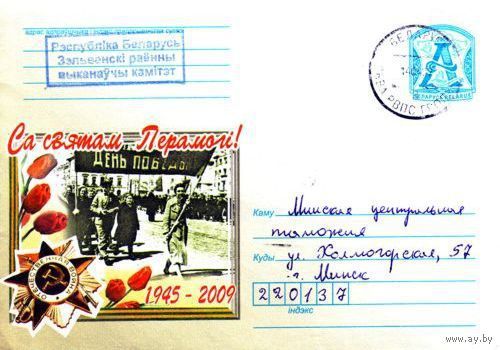 Рэспубліка Беларусь
Зэльвенскі раённы
выканаўчы камітэт
БЕЛАРУСЬ
А
БЕЛАРУСЬ BELARUS
Са святам Перамогі!
ДЕНЬ ПОБЕДЫ
ОТЕЧЕСТВЕННАЯ ВОЙНА
1945 - 2009
Каму Минская центральная
таможня
Куды ул. Холмогорская, 57
г. Минск
220137
індэкс
www.ay.by